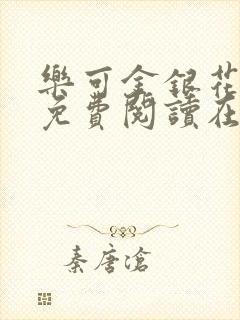 樂可金銀花
免費閱讀在
秦唐滄